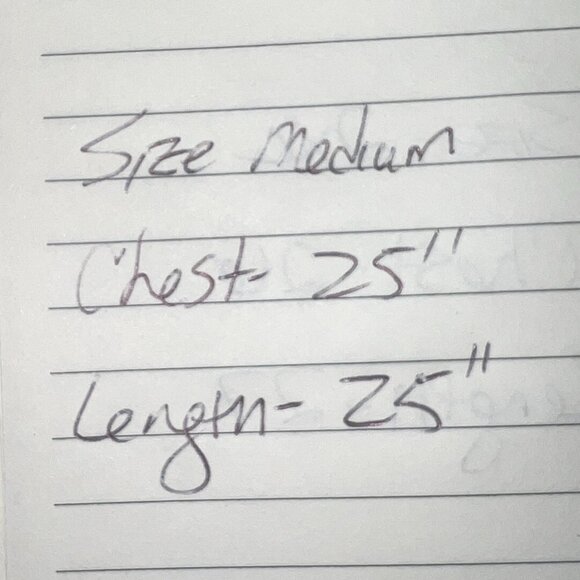 Size Medium
Chest- 25"
Length- 25"